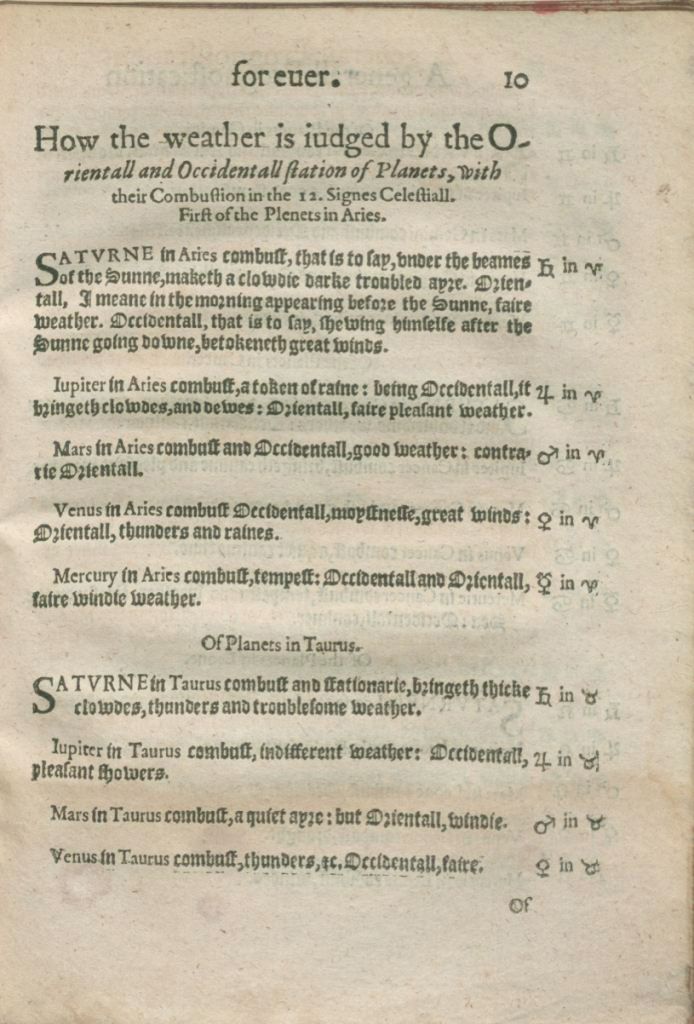 for euer. 10
How the weather is iudged by the O-
rientall and Occidentall ſtation of Planets, with
their Combuſtion in the 12. Signes Celeſtiall.
Firſt of the Plenets in Aries.
SATVRNE in Aries combuſt, that is to ſay, vnder the beames ♄ in ♈
of the Sunne, maketh a clowdie darke troubled ayre. Orien-
tall, I meane in the morning appearing before the Sunne, faire
weather. Occidentall, that is to ſay, ſhewing himſelfe after the
Sunne going downe, betokeneth great winds.
Iupiter in Aries combuſt, a token of raine: being Occidentall, it ♃ in ♈
bringeth clowdes, and dewes: Orientall, faire pleaſant weather.
Mars in Aries combuſt and Occidentall, good weather: contra- ♂ in ♈
rie Orientall.
Venus in Aries combuſt Occidentall, moyſtneſſe, great winds: ♀ in ♈
Orientall, thunders and raines.
Mercury in Aries combuſt, tempeſt: Occidentall and Orientall, ☿ in ♈
faire windie weather.
Of Planets in Taurus.
SATVRNE in Taurus combuſt and ſtationarie, bringeth thicke ♄ in ♉
clowdes, thunders and troubleſome weather.
Iupiter in Taurus combuſt, indifferent weather: Occidentall, ♃ in ♉
pleaſant ſhowers.
Mars in Taurus combuſt, a quiet ayre: but Orientall, windie. ♂ in ♉
Venus in Taurus combuſt, thunders, ⁊c. Occidentall, faire. ♀ in ♉
Of